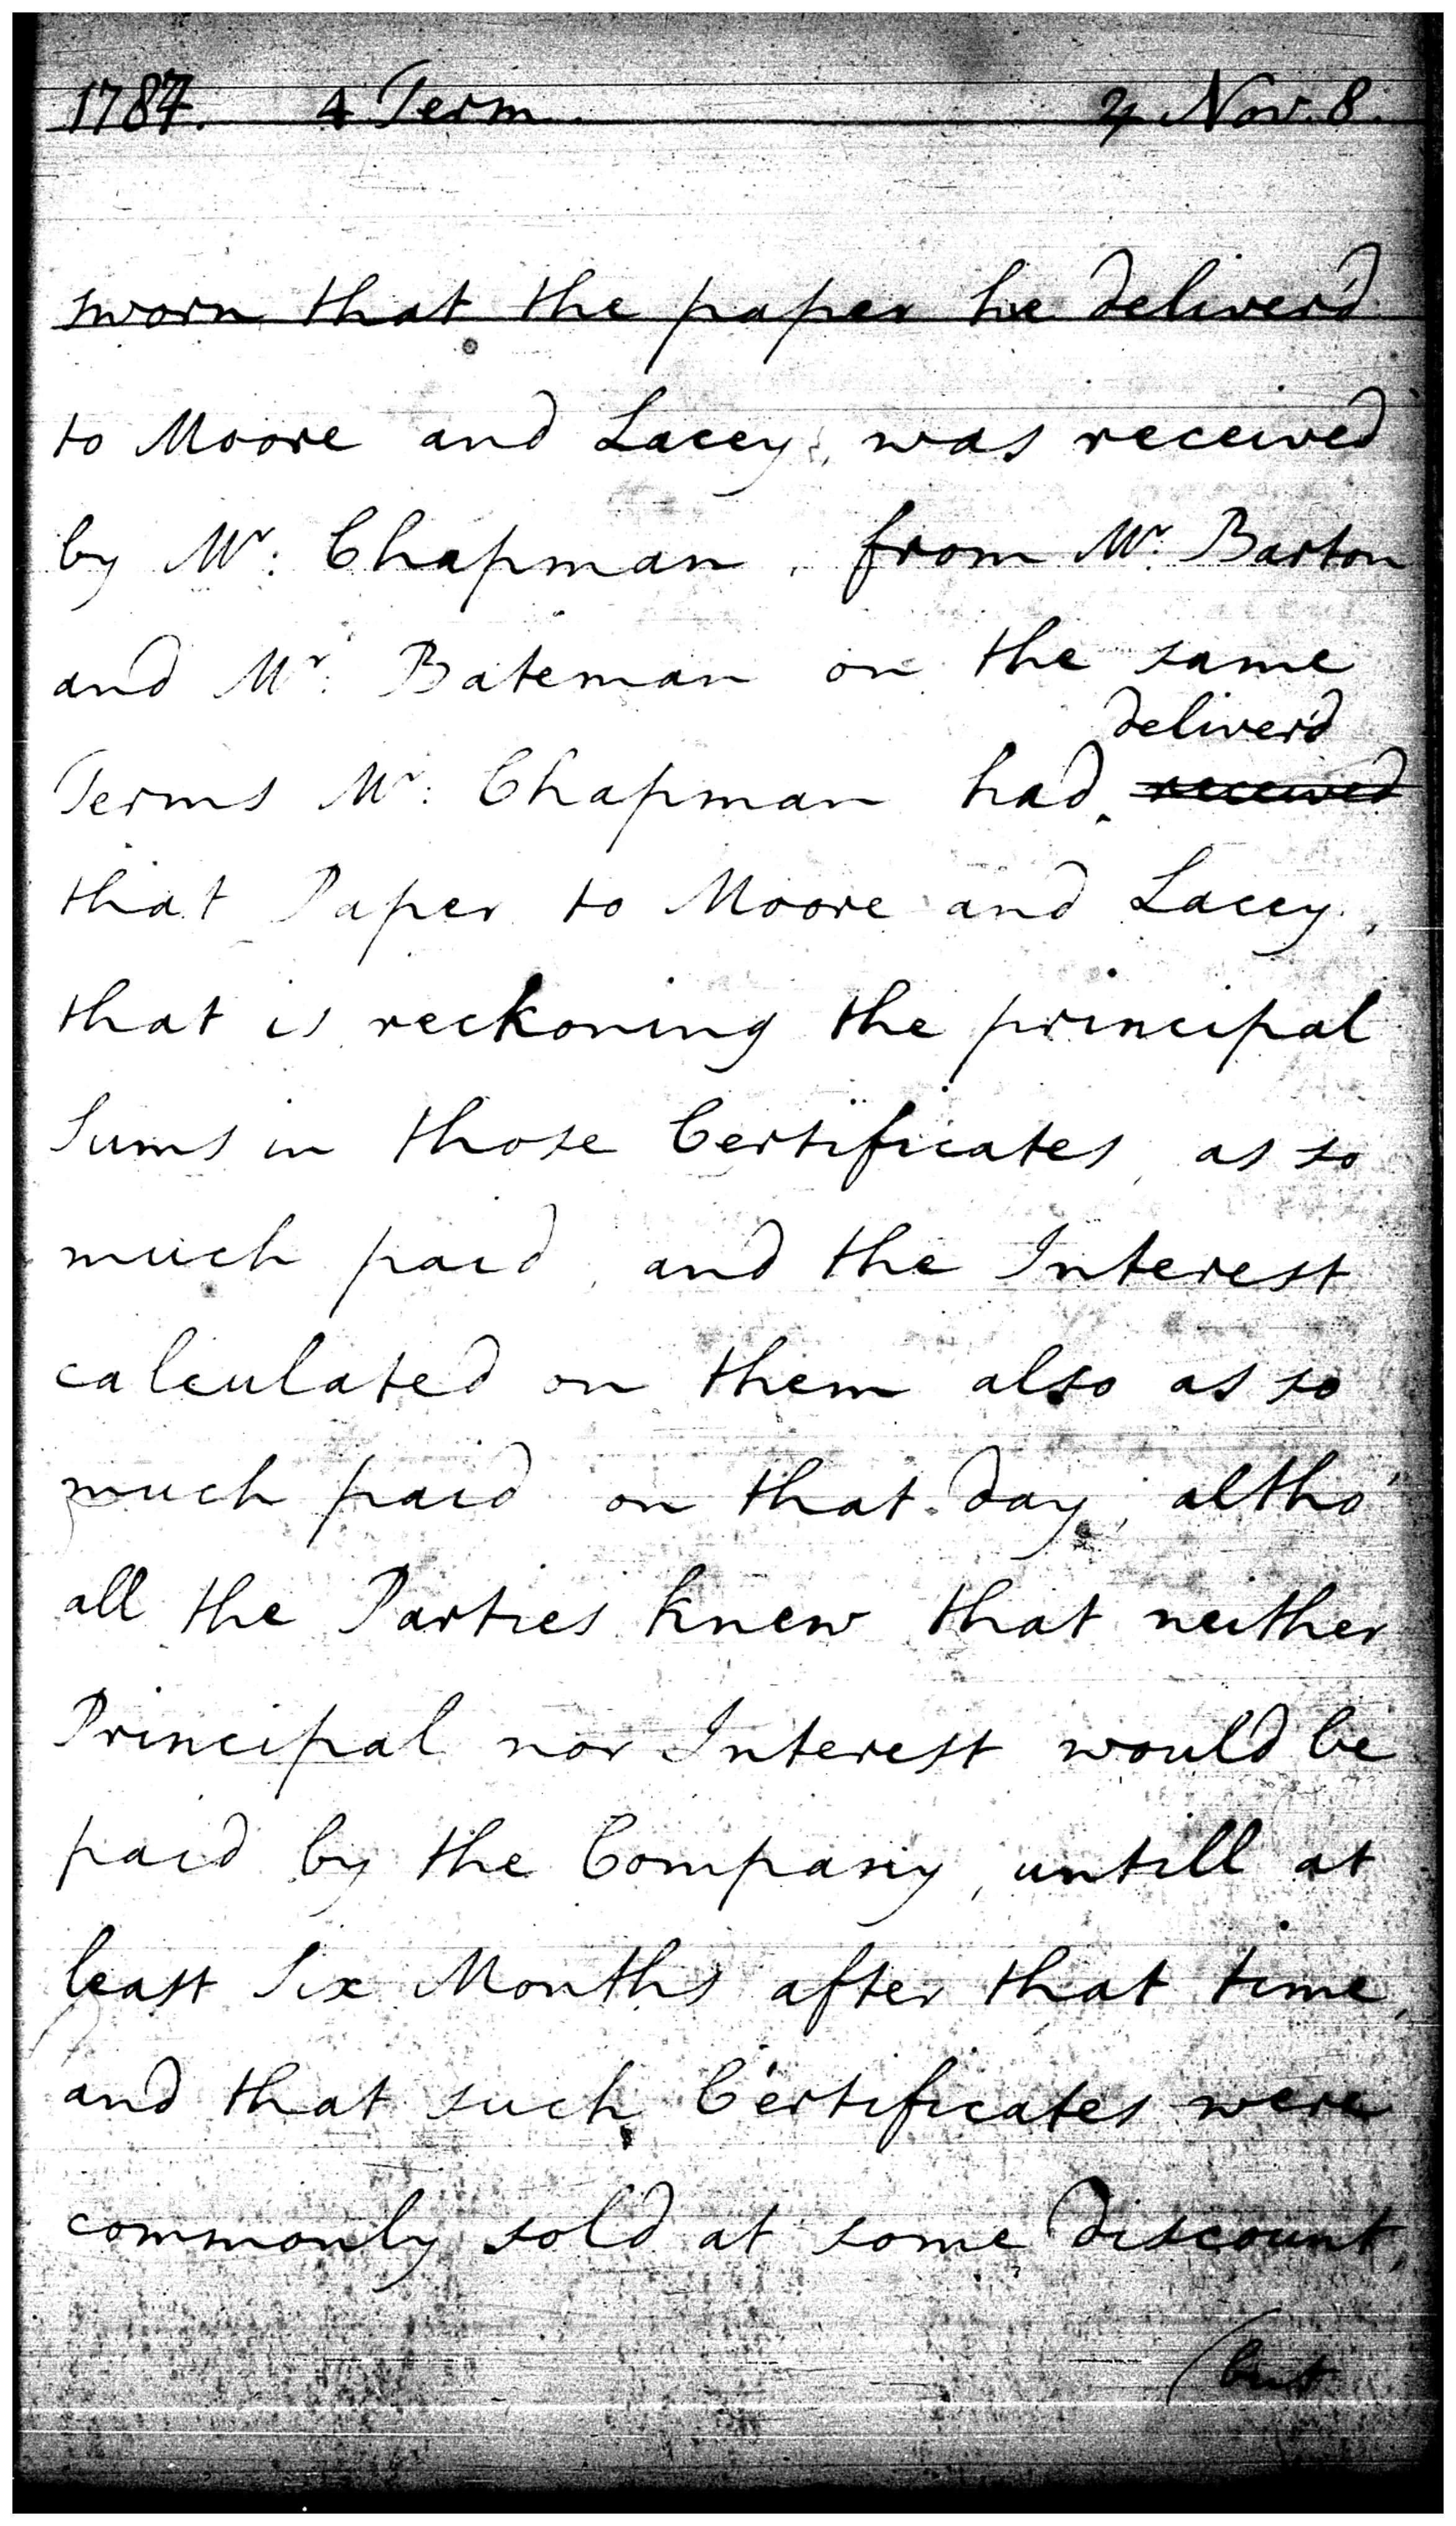 1787. 4 Term. ♃ Nov. 8.
sworn that the paper he deliver'd
to Moore and Lacey, was received
by Mr. Chapman, from Mr. Barton
and Mr. Bateman on the same
deliver'd
Terms Mr. Chapman had ‸ received
that Paper to Moore and Lacey,
that is reckoning the principal
Sums in those Certificates, as so
much paid, and the Interest
calculated on them also as so
much paid on that day, altho'
all the Parties knew that neither
Principal nor Interest would be
paid by the Company, untill at
least Six Months after that time,
and that such Certificates were
commonly sold at some discount,
(but